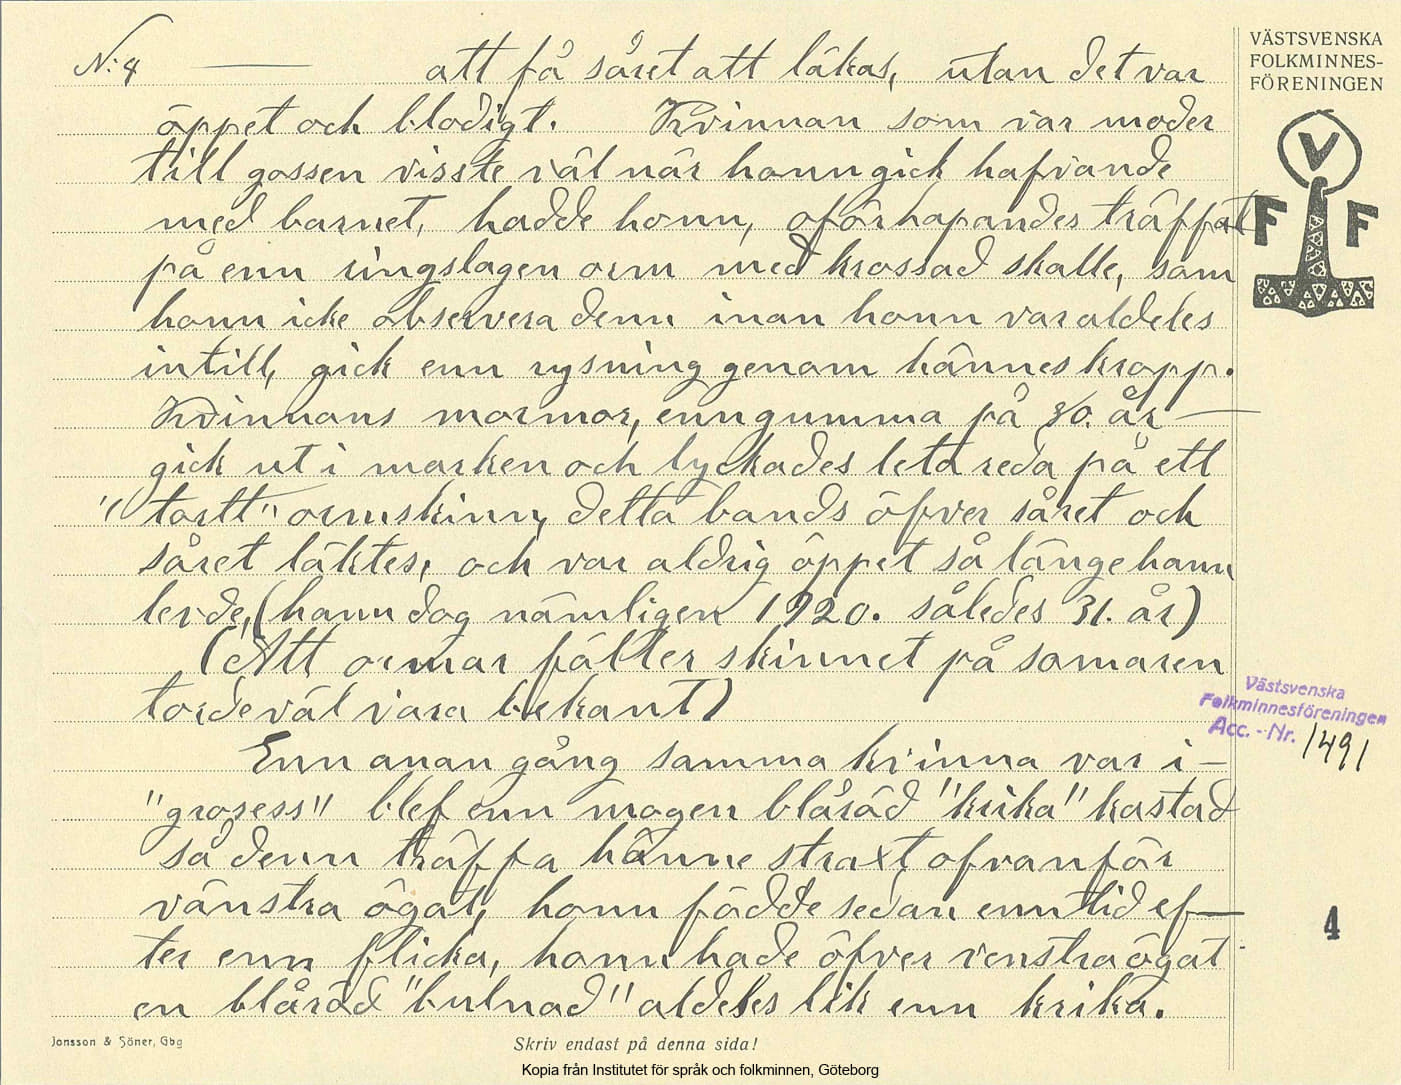 N:4 att få såret att läkas, utan det var
öppet och blodigt. Kvinnan som var moder
till gossen visste väl när honn gick hafvande
med barnet, hadde honn, oförhapandes träffat
på enn ringslagen orm med krossad skalle, som
honn icke observera denn inan honn var aldeles
intill, gick enn rysning genom hännes kropp.
Kvinnans mormor, enn gumma på 80. år
gick ut i marken och lyckades leta reda på ett
"tortt" ormskinn, detta bands öfver såret och
såret läktes, och var aldrig öppet så länge hann
levde, (hann dog nämligen 1920. således 31. år)
(Att ormar fäller skinnet på somaren
torde väl vara bekant)
Enn anan gång samma kvinna var i-
"grosess" blef enn mogen blåröd "krika" kastad
så denn träffa hänne straxt ofvanför
vänstra ögat, honn födde sedan enn tid ef-
ter enn flicka, honn hade öfver venstra ögat
en blåröd "bulnad" aldeles lik enn krika.
VÄSTSVENSKA
FOLKMINNES-
FÖRENINGEN
V
F F
Västsvenska
Folkminnesföreningen
Acc. - Nr. 1491
4
Jonsson & Söner, Gbg
Skriv endast på denna sida!
Kopia från Institutet för språk och folkminnen, Göteborg